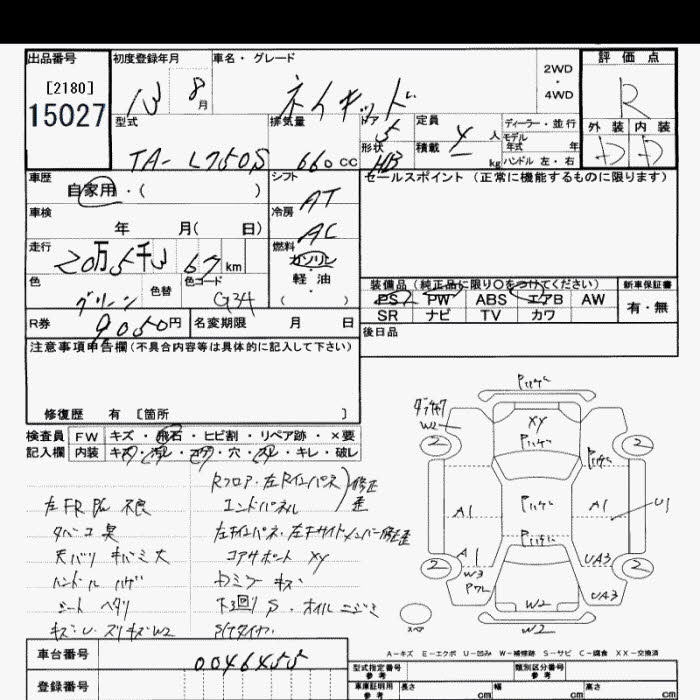 出品番号
[2180]
15027
初度登録年月
13 8月
車名・グレード
ネイキッド
2WD
・
4WD
評価点
R
外装 内装
D D
型式
TA-L750S
排気量
660cc
ドア 5
形状 HB
定員
4人
積載
kg
ディーラー・並行
モデル
年式 年
ハンドル 左・右
車歴
自家用・( )
シフト
AT
車検
年 月( 日)
冷房
AC
走行
20万5千 67 km
燃料
ガソリン
・
軽油
( )
色
グリーン
色替
色コード
G34
R券
9050円
名変期限 月 日
セールスポイント (正常に機能するものに限ります)
装備品 (純正品に限り○をつけてください)
PS PW ABS エアB AW
SR ナビ TV カワ
新車保証書
有・無
後日品
注意事項申告欄(不具合内容等は具体的に記入して下さい)
修復歴 有 [箇所 ]
検査員
記入欄
FW キズ・飛石・ヒビ割・リペア跡・×要
内装 キズ・汚レ・コゲ・穴・スレ・キレ・破レ
左FR P/W 不良
タバコ臭
天バリ キバミ大
ハンドル ハゲ
シート ヘタリ
キズ・U・スリキズW2
Rフロア・左Rインパネ
エンドパネル
修正
歪
左Fインパネ・左Fサイドメンバー修正歪
コアサポート XY
カミブ キズ
下回り S・オイルニジミ
S/Tタイヤ
ダッチャク
W2
XY
2 2
A1 A1 U1
A1
W3
UA3
UA3
2 2
W2
W2
スペア
A-キズ E-エクボ U-凹み W-補修跡 S-サビ C-腐食 XX-交換済
車台番号
0046455
登録番号
型式指定番号
参考
類別区分番号
参考
車庫証明用
参考
長さ cm 幅 cm 高さ cm